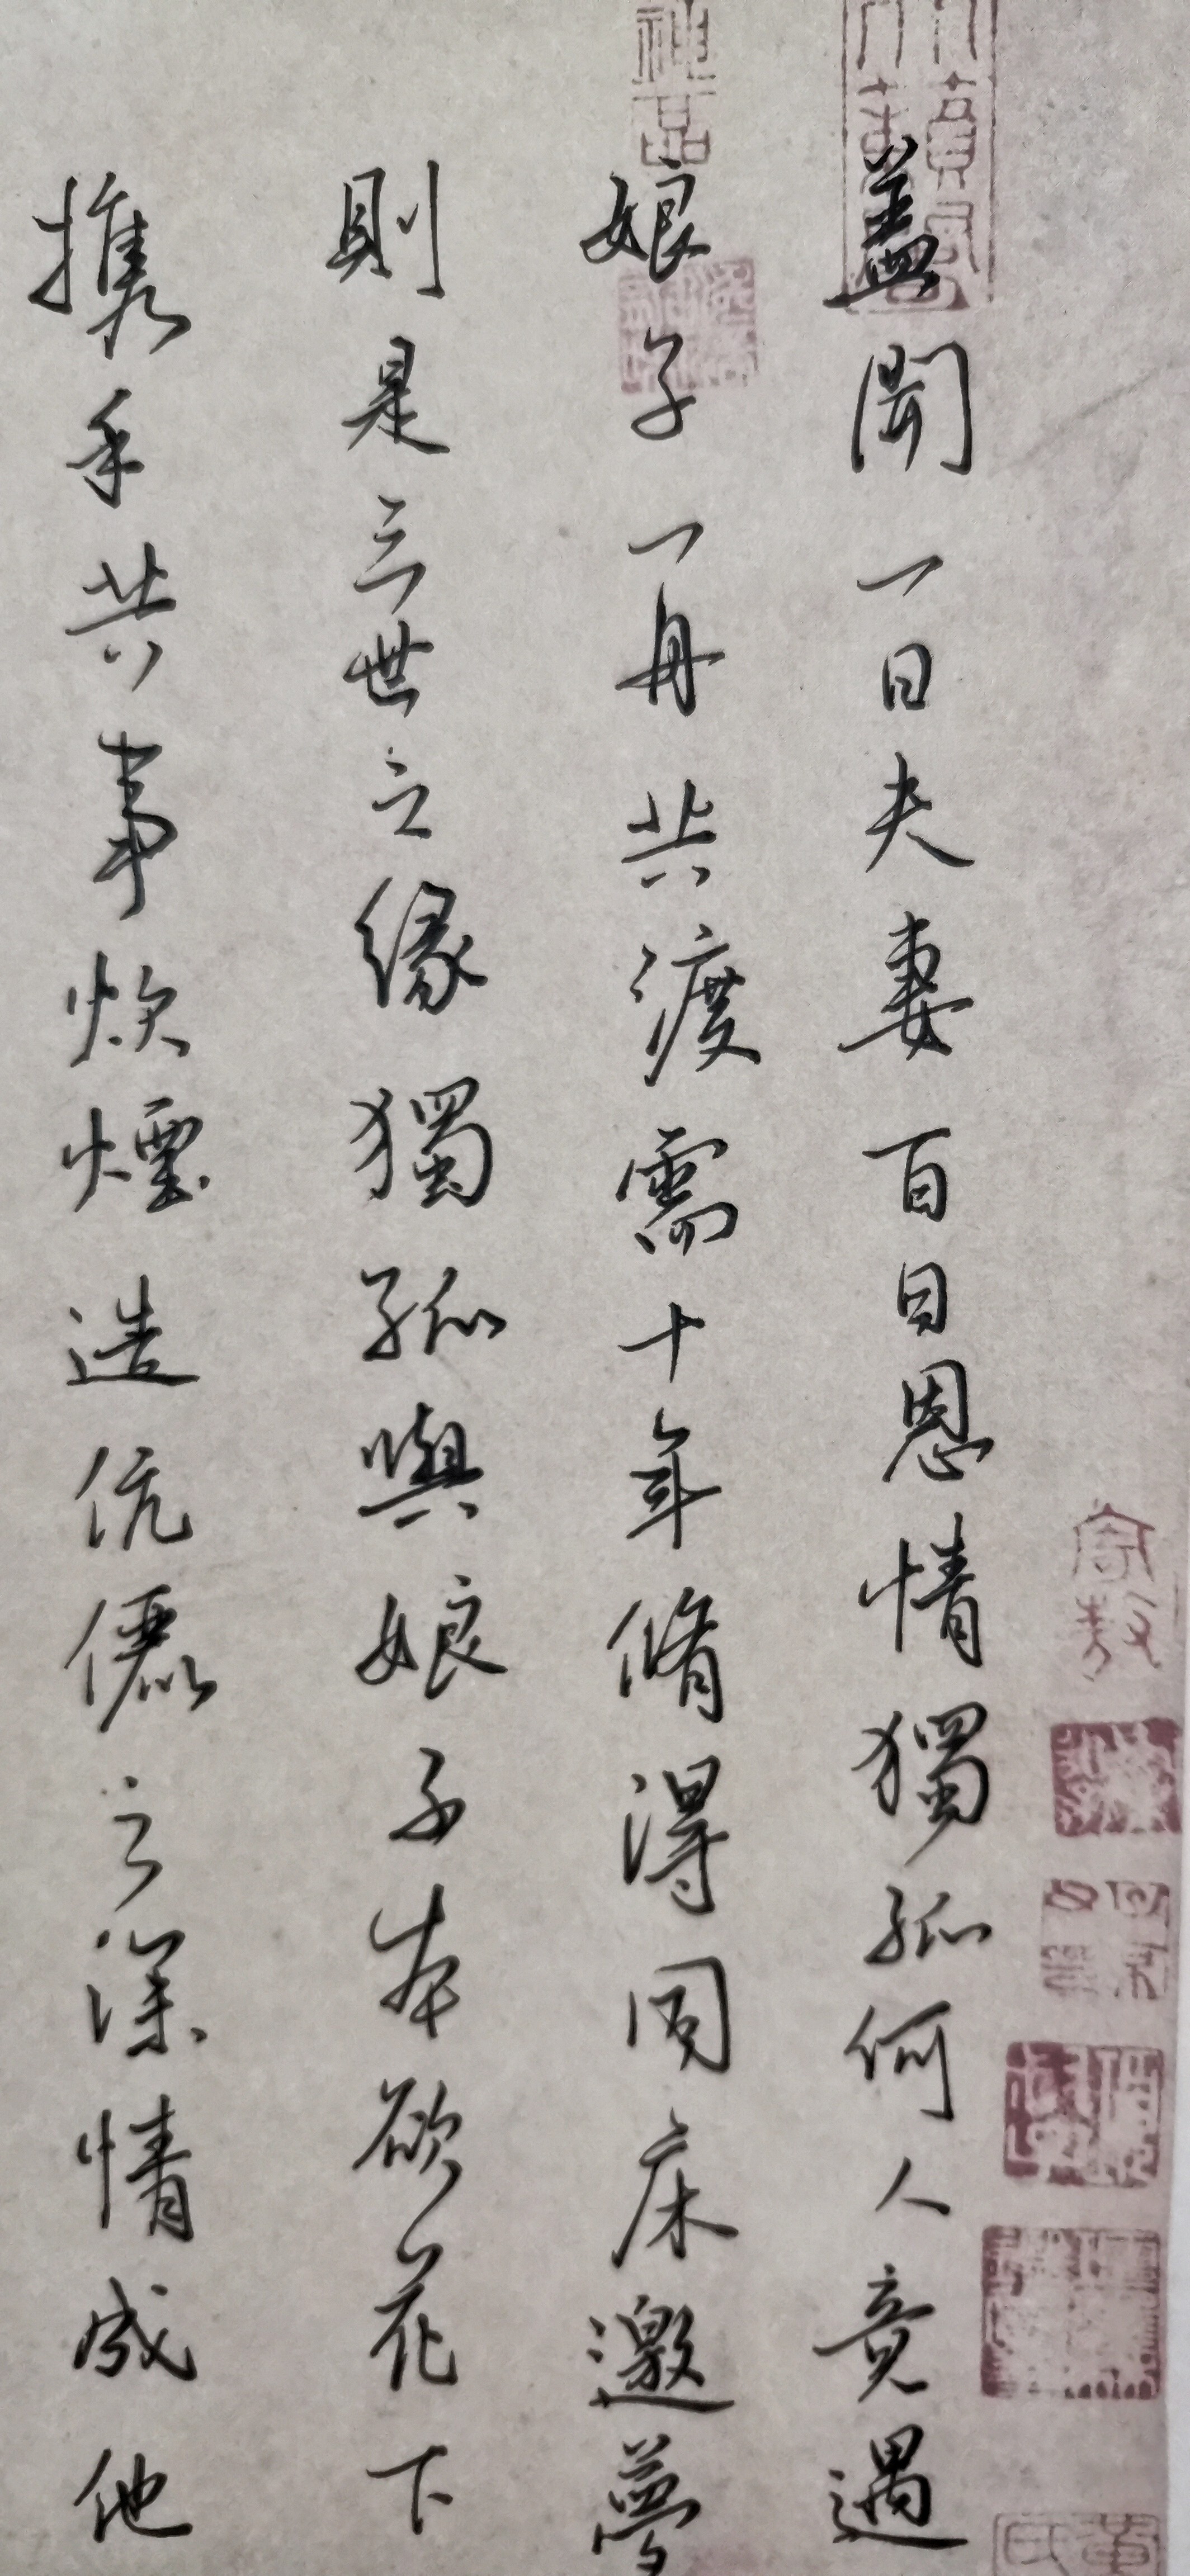 蓋聞一日夫妻百日恩情獨孤何人竟遇
娘子一舟共渡需十年脩得同床邀夢
則是三世之緣獨孤與娘子本欲花下
攜手共事炊煙造伉儷之深情成他